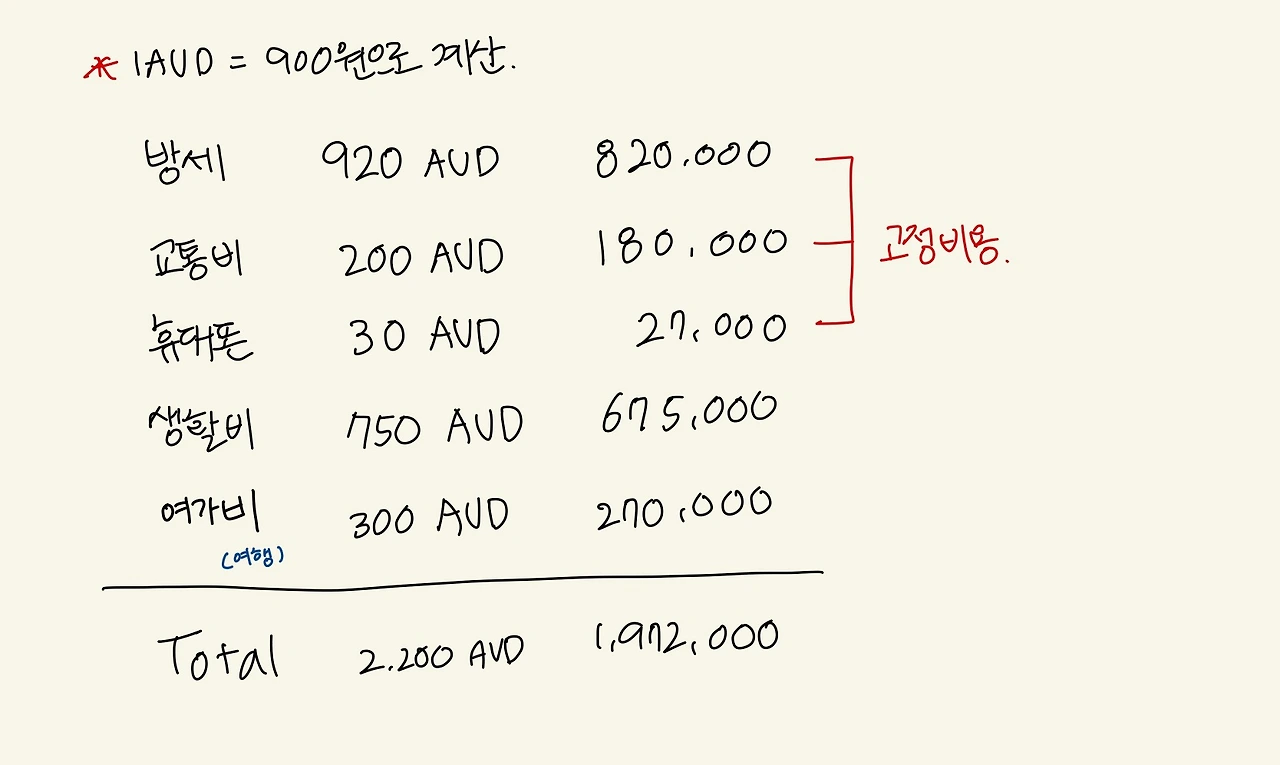 * 1AUD = 900원으로 계산.
방세 920 AUD 820.000
교통비 200 AUD 180.000
고정비용.
휴대폰 30 AUD 27.000
생활비 750 AUD 675,000
여가비 300 AUD 270,000
(여행)
Total 2.200 AUD 1,972,000